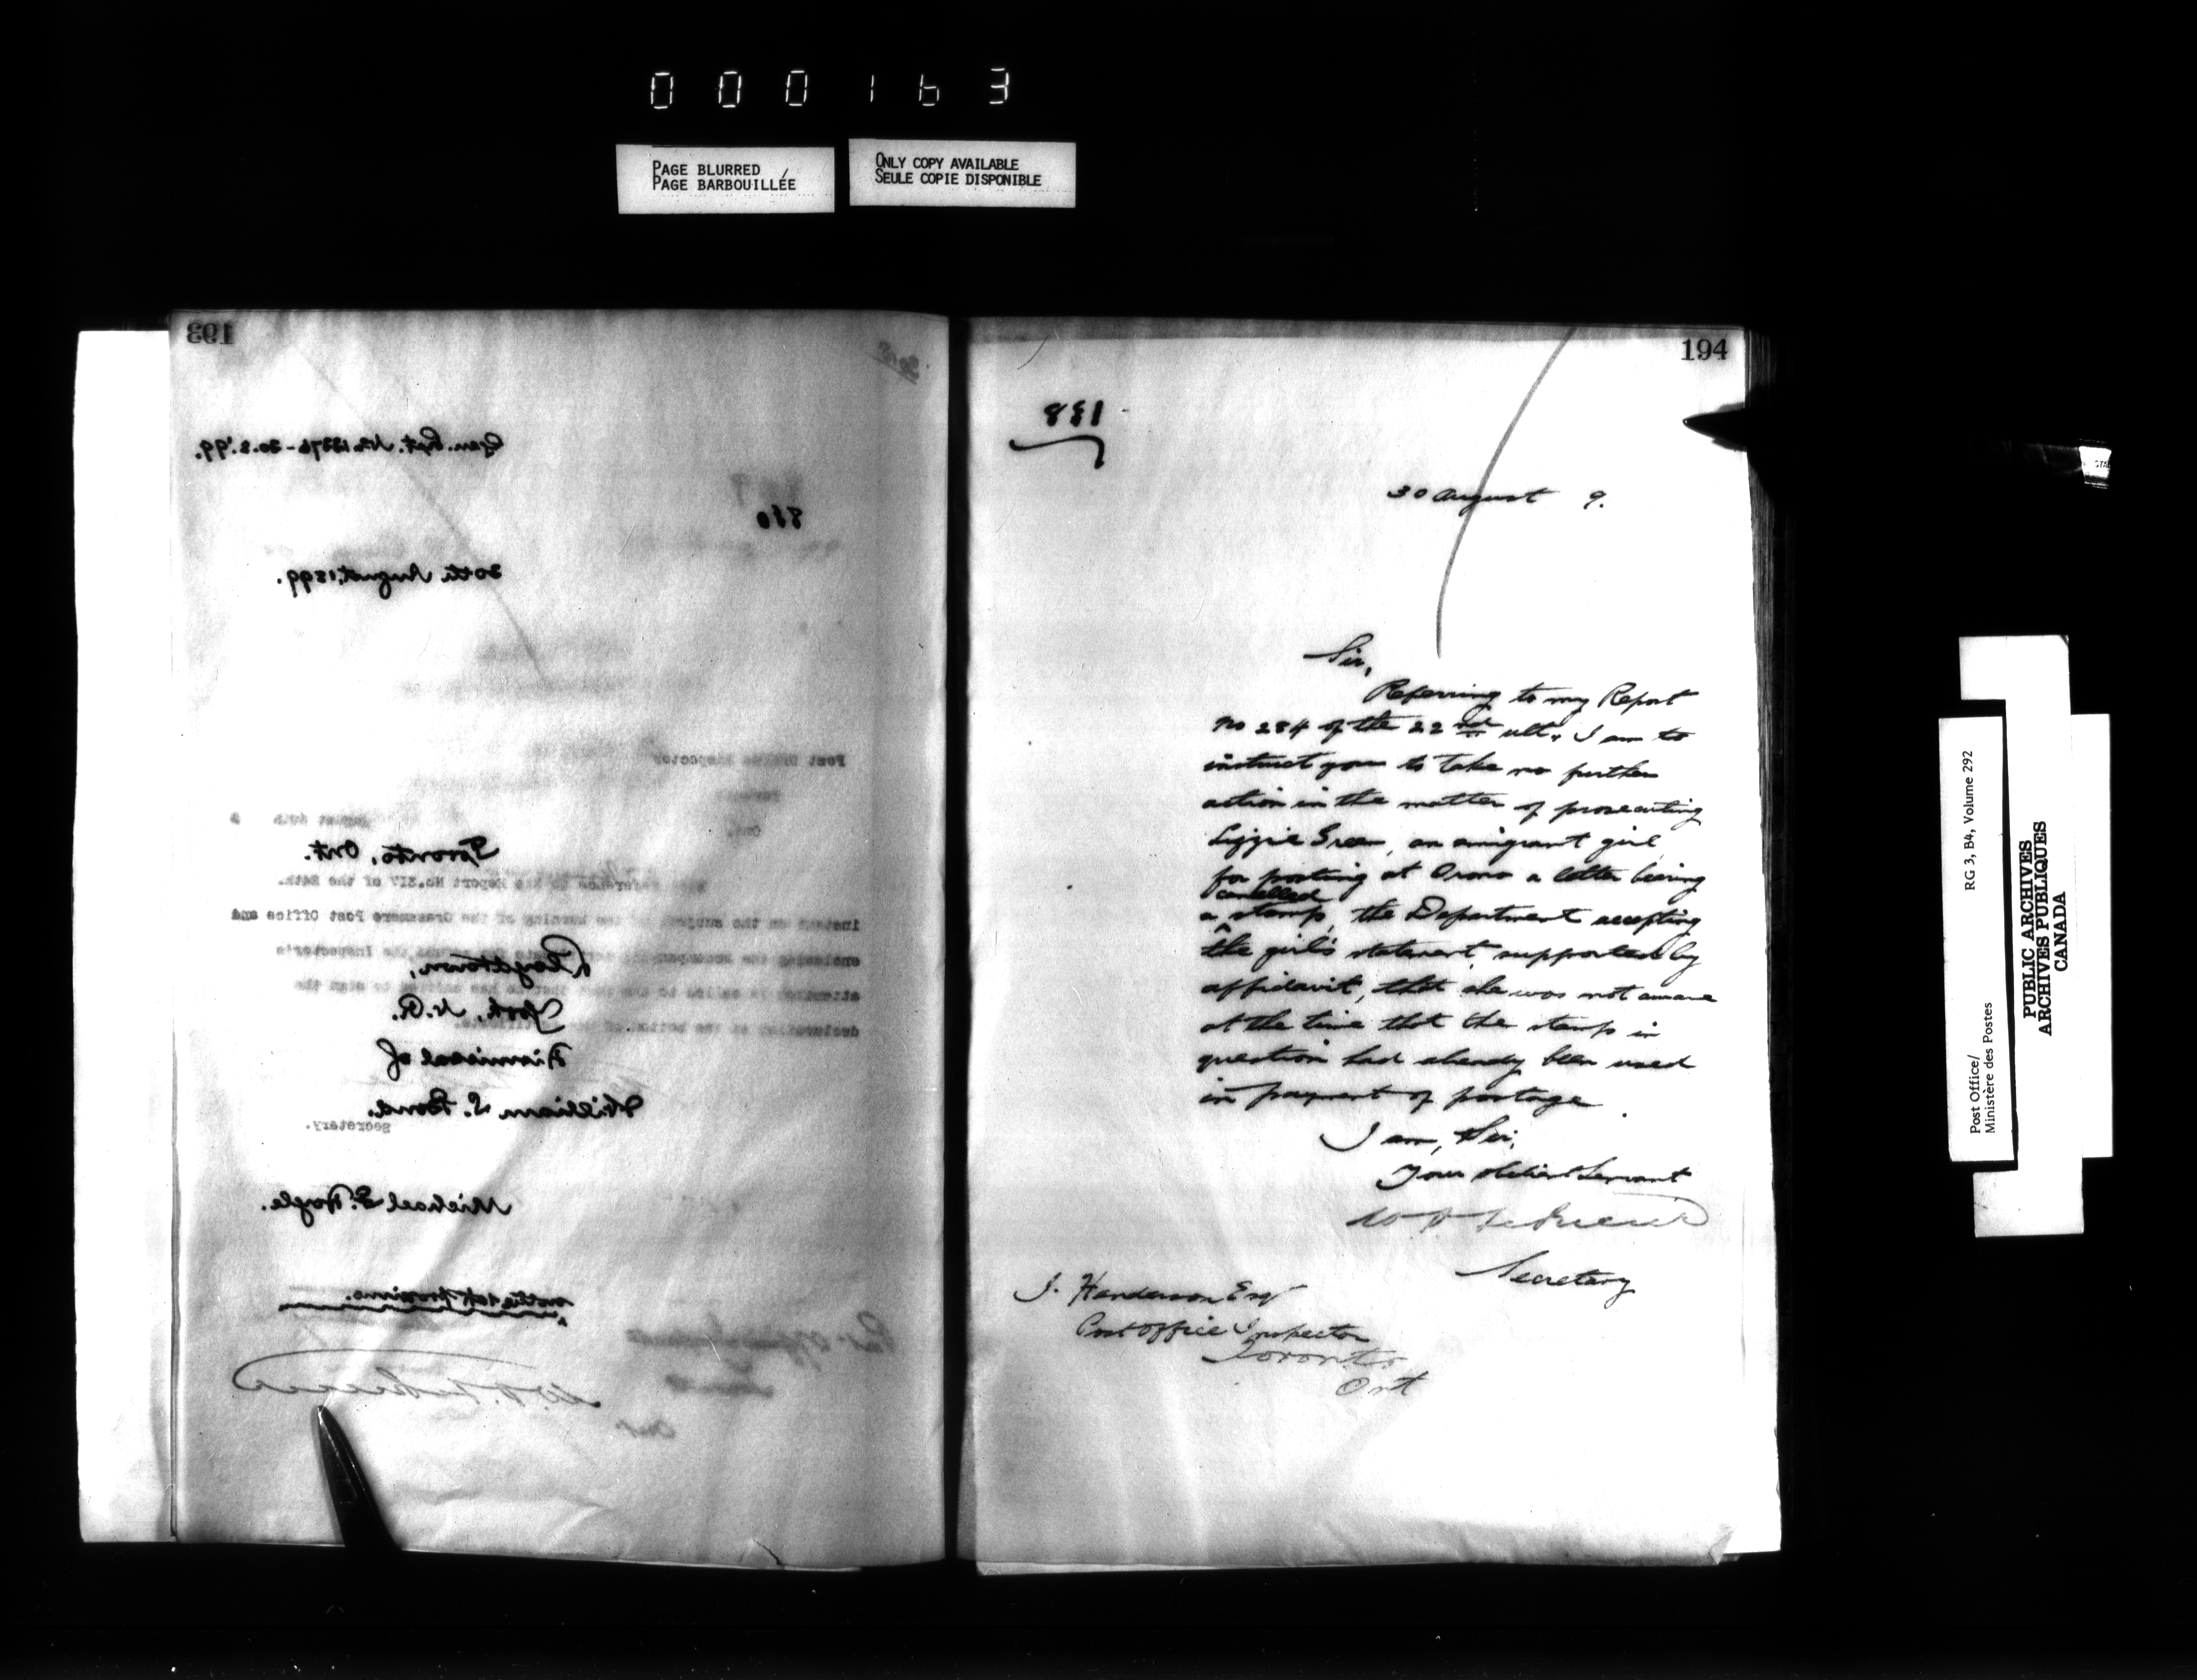 000163
PAGE BLURRED
PAGE BARBOUILLÉE
ONLY COPY AVAILABLE
SEULE COPIE DISPONIBLE
193
Gen. Rept. No. 12276-30.8.'99.
860
30th August, 1899.
Toronto, Ont.
Lloydtown,
York, N.R.
Dismissal of
William S. Bond.
Michael F. Hoyle.
Post Office Inspector
Toronto
Ont.
August 30th 9
reference to his Report No.XIV of the 24th.
instant on the subject of the working of the Grassmere Post Office and
enclosing the accompanying
the Inspector's
attention is called to the
has omitted to sign the
declaration at the bottom of
certificate.
Secretary.
194
138
30 August 9.
Sir,
Referring to my Report
No 284 of the 22nd ult., I am to
instruct you to take no further
action in the matter of prosecuting
Lizzie Green, an emigrant girl,
for posting at Orono a letter bearing
cancelled
a stamp, the Department accepting
the girl's statement, supported by
affidavit, that she was not aware
at the time that the stamp in
question had already been used
in payment of postage.
I am, Sir,
Your obedient Servant
Secretary
J. Henderson Esq
Post Office Inspector
Toronto
Ont
Post Office/
Ministère des Postes
RG 3, B4, Volume 292
PUBLIC ARCHIVES
ARCHIVES PUBLIQUES
CANADA